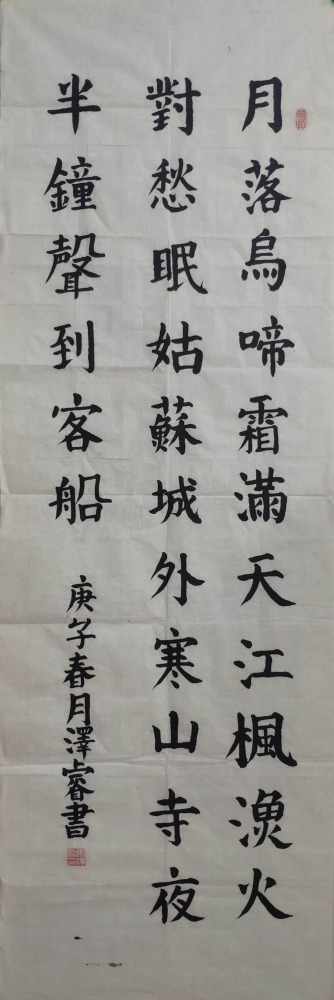 月落烏啼霜滿天江楓漁火
對愁眠姑蘇城外寒山寺夜
半鐘聲到客船
庚子春月澤睿書